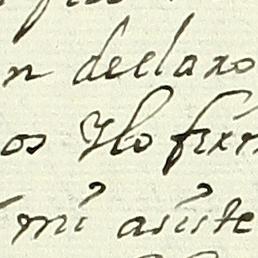 n declaro
os Ylo firm
mi asiste